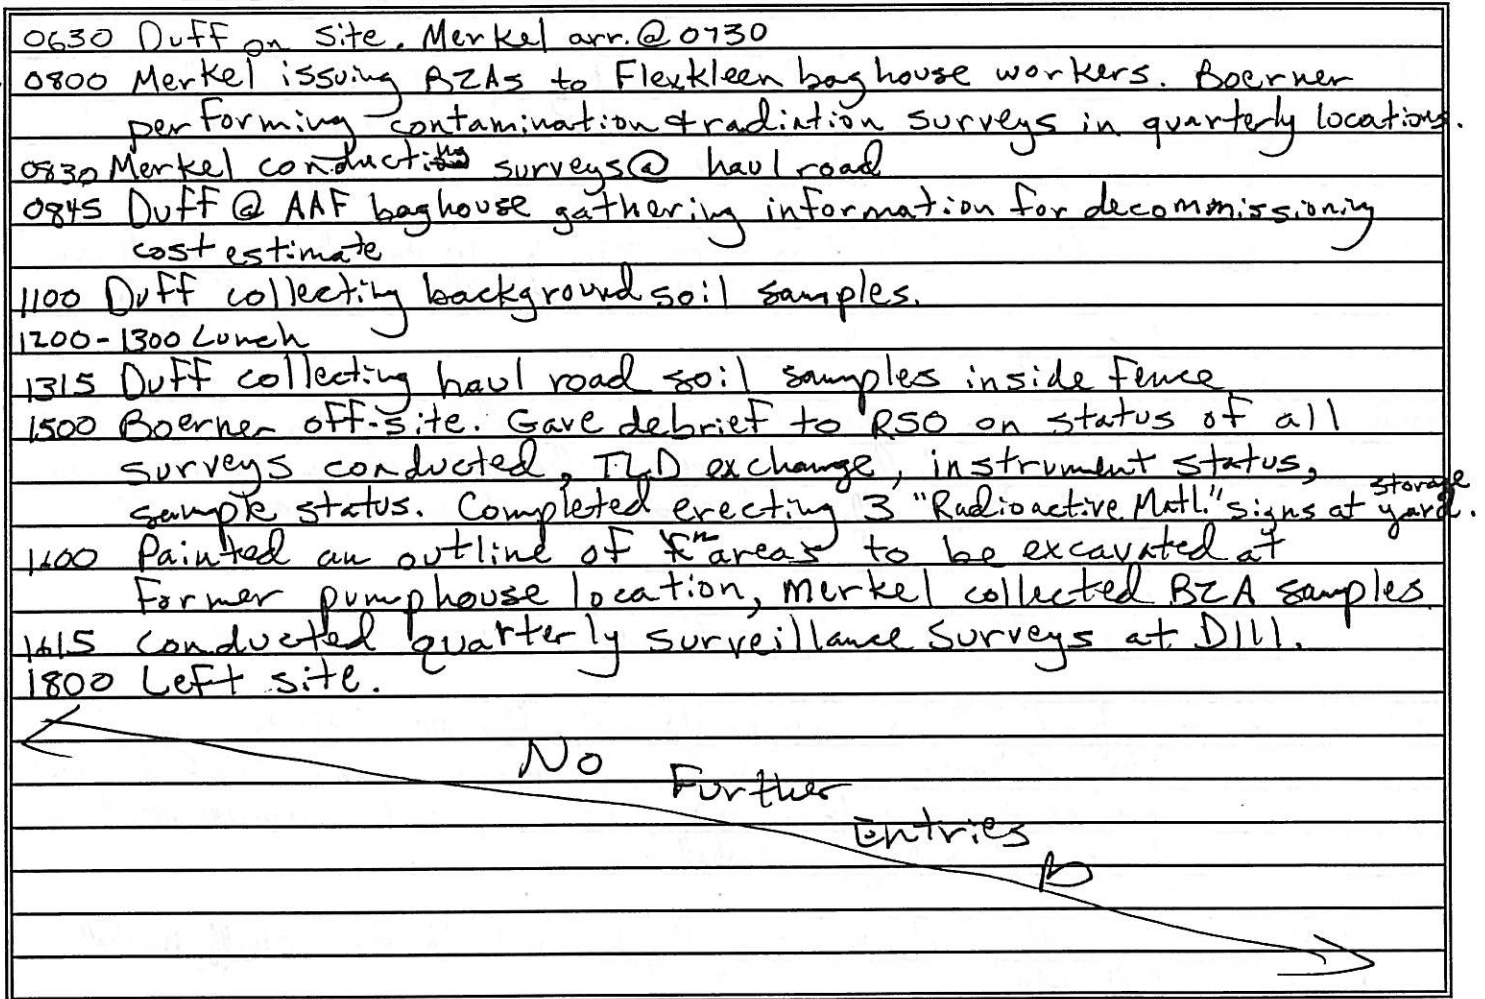 0630 Duff on site. Merkel arr. @ 0730
0800 Merkel issuing BZAs to Flexkleen baghouse workers. Boerner
performing contamination & radiation surveys in quarterly locations.
0830 Merkel conducting surveys @ haul road
0845 Duff @ AAF baghouse gathering information for decommissioning
cost estimate
1100 Duff collecting background soil samples.
1200-1300 Lunch
1315 Duff collecting haul road soil samples inside fence
1500 Boerner off-site. Gave debrief to RSO on status of all
surveys conducted, TLD exchange, instrument status,
sample status. Completed erecting 3 "Radioactive Matl." signs at storage yard.
1600 Painted an outline of areas to be excavated at
former pumphouse location, Merkel collected BZA samples
1615 conducted quarterly surveillance surveys at D111.
1800 Left site.
No
Further
Entries